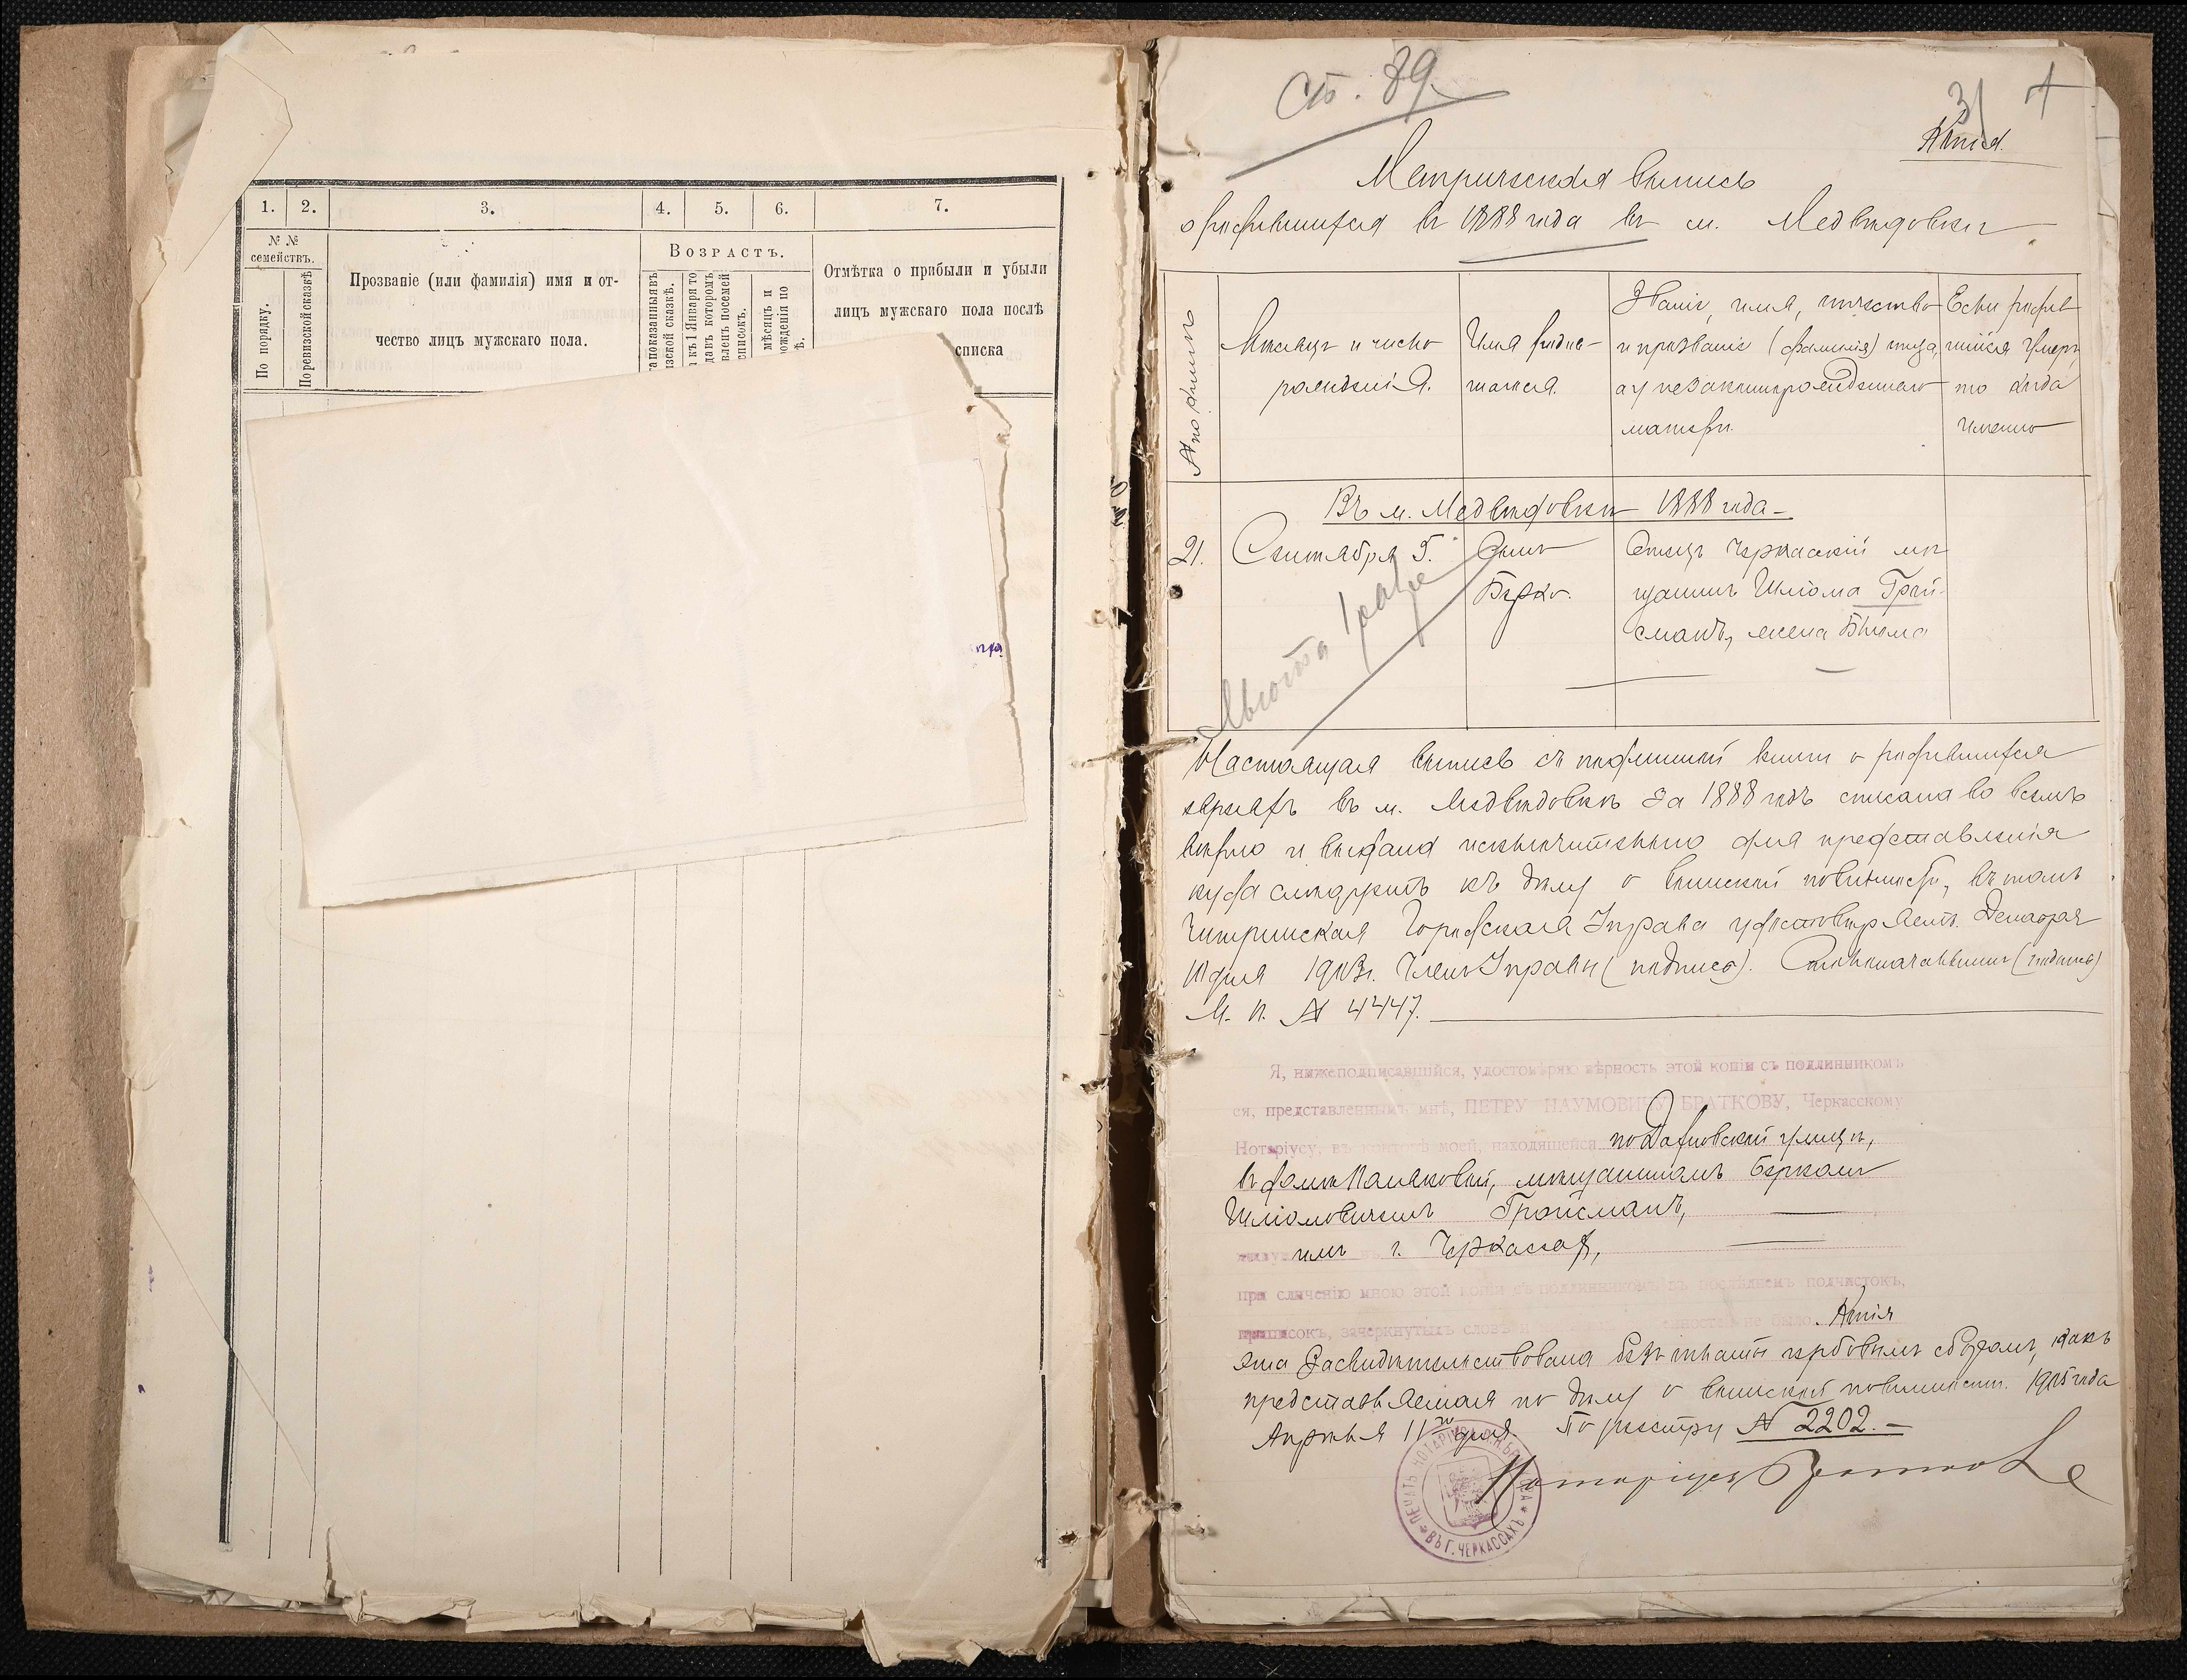 1. 2. 3. 4. 5. 6. 7.
№ №
семействъ.
По порядку.
По ревизской сказкѣ
Прозваніе (или фамилія) имя и от-
чество лицъ мужскаго пола.
Возрастъ.
а показанный въ
зской сказкѣ.
къ 1 Января то
да въ которомъ
вленъ посемей
списокъ.
мѣсяцъ и
ожденія по
ѣ.
Отмѣтка о прибыли и убыли
лицъ мужскаго пола послѣ
списка
Ст. 89.
31
Копія.
Метрическая выпись
о родившихся въ 1888 года въ м. Медведовки
№ по
Мѣсяцъ и число
рожденія.
Имя родив-
шагося.
Званіе, имя, отчество
и прозваніе (фамилія) отца,
а у незаконнорожденнаго
матери.
Если родив-
шійся умеръ,
то когда
именно
Въ м. Медвѣдовки 1888 года
21.
Сентября 5.
Сынъ
Берко.
Отецъ Черкасскій мѣ
щанинъ Шліома Грой-
сманъ, жена Бейла
Льгота
Настоящая выпись съ подлинной книги о родившихся
евреяхъ въ м. Медвѣдовкѣ за 1888 годъ списана во всемъ
вѣрно и выдана исключительно для представленія
куда слѣдуетъ къ дѣлу о воинской повинности, въ томъ
Чигиринская Городская Управа удостовѣряетъ. Декабря
10 дня 1903 г. Членъ Управы (подпись).
М. п. № 4447.
Я, нижеподписавшійся, удостовѣряю вѣрность этой копіи съ подлинникомъ
ея, представленнымъ мнѣ, ПЕТРУ НАУМОВИЧУ БРАТКОВУ, Черкасскому
Нотаріусу, въ конторѣ моей, находящейся по улицѣ,
въ домѣ мѣщаниномъ Беркомъ
Шліомовичемъ Гройсманъ,
г. Черкассахъ,
при сличеніи мною этой копіи съ подлинникомъ въ послѣднемъ подчистокъ,
приписокъ, зачеркнутыхъ словъ не было. Копія
эта засвидѣтельствована безъ оплаты гербовымъ сборомъ, какъ
представляемая по дѣлу о воинской повинности. 1905 года
Апрѣля 11 го дня. По реестру № 2202.
Нотаріусъ Братковъ
ПЕЧАТЬ НОТАРІУСА
ВЪ Г. ЧЕРКАССАХЪ